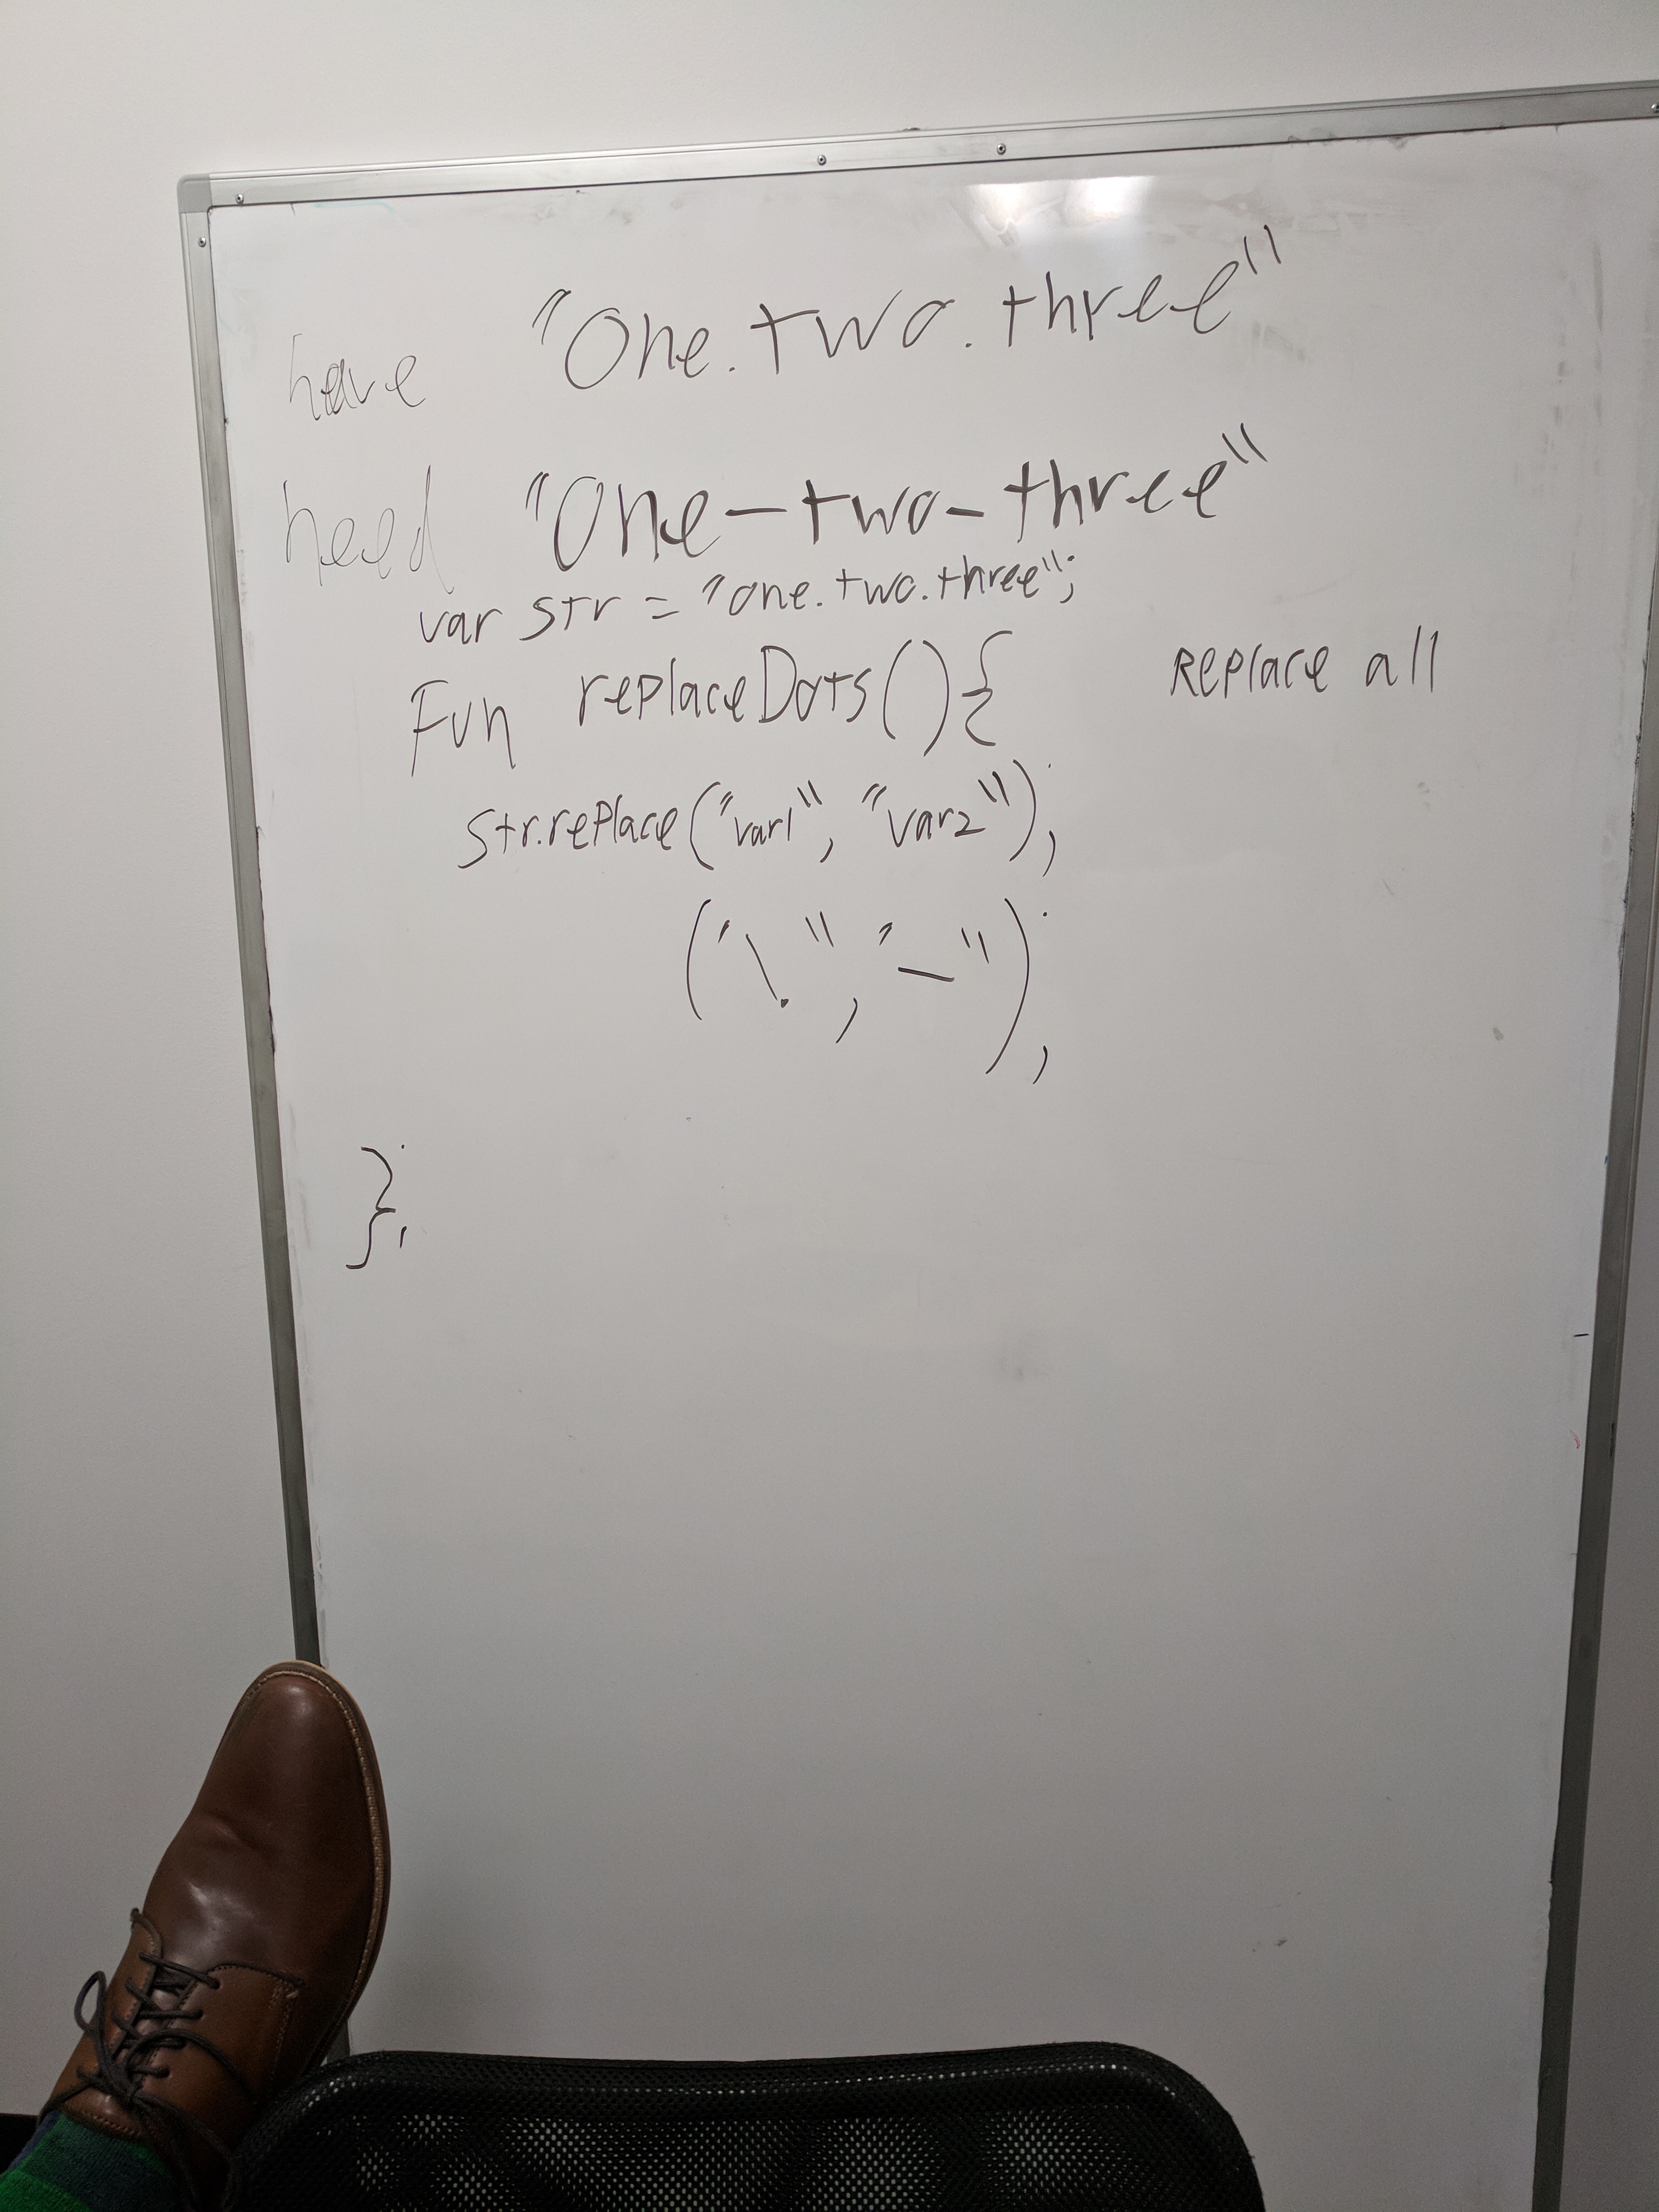 have "One.two.three"
need "One-two-three"
var str = "one.two.three";
Fun replaceDots(){ Replace all
str.replace("var1", "var2");
("\.", "-");
};